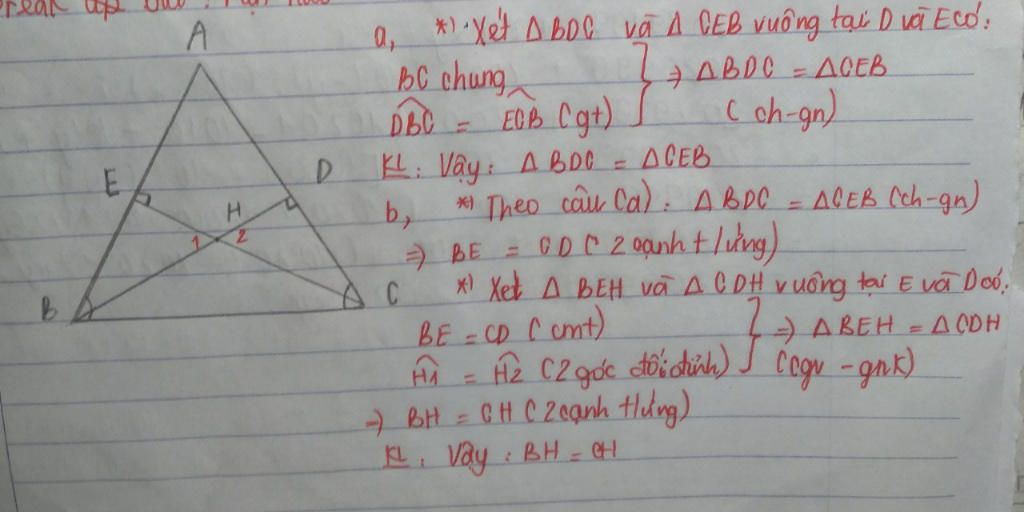 A
E
D
H
1 2
B
C
a, *) Xét Δ BDC và Δ CEB vuông tại D và E có:
BC chung
DBC = ECB (gt) } => ΔBDC = ΔCEB
(ch-gn)
KL: Vậy: Δ BDC = ΔCEB
b, *) Theo câu (a): Δ BDC = ΔCEB (ch-gn)
=> BE = CD (2 cạnh t/ứng)
*) Xét Δ BEH và Δ CDH vuông tại E và D có:
BE = CD (cmt) } => ΔBEH = ΔCDH
H1 = H2 (2 góc đối đỉnh) (cgv - gnk)
=> BH = CH (2 cạnh t/ứng)
KL: Vậy: BH = CH